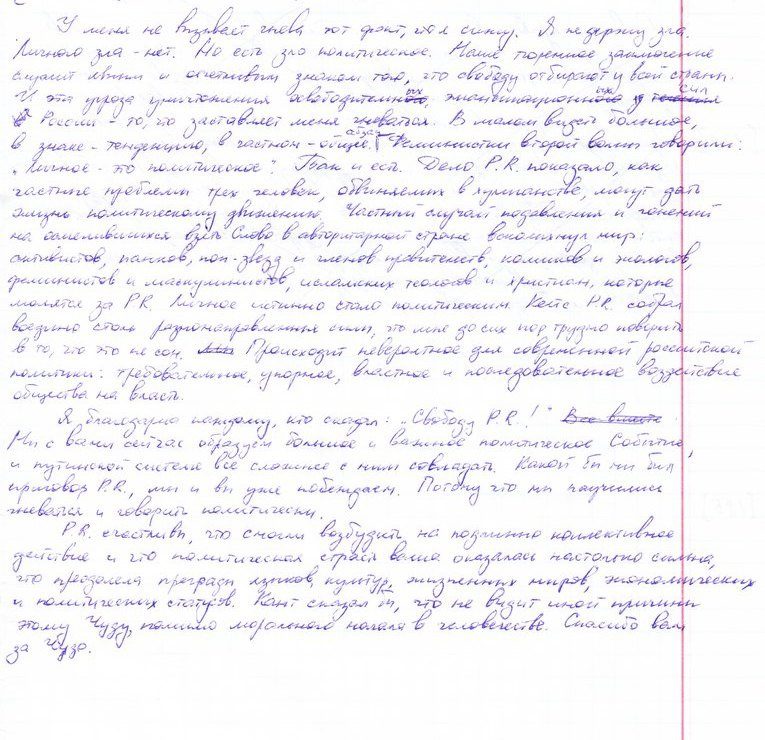 У меня не вызывает гнева тот факт, что я сижу. Я не держу зла.
Личного зла - нет. Но есть зло политическое. Наше тюремное заключение
служит явным и отчетливым знаком того, что свободу отбирают у всей страны.
И эта угроза уничтожения освободительных, эманципационных сил
России - то, что заставляет меня гневаться. В малом видеть большое,
в знаке - тенденцию, в частном - общее. Феминистки второй волны говорили:
„Личное - это политическое". Так и есть. Дело P.R. показало, как
частные проблемы трех человек, обвиняемых в хулиганстве, могут дать
жизнь политическому движению. Частный случай подавления и гонений
на осмелившихся взять Слово в авторитарной стране всколыхнул мир:
активистов, панков, поп-звезд и членов правительств, комиков и экологов,
феминистов и маскулинистов, исламских теологов и христиан, которые
молятся за P.R. Личное истинно стало политическим. Кейс P.R. собрал
воедино столь разнонаправленные силы, что мне до сих пор трудно поверить
в то, что это не сон. Происходит невероятное для современной российской
политики: требовательное, упорное, властное и последовательное воздействие
общества на власть.
Я благодарна каждому, кто сказал: „Свободу P.R.!"
Мы с вами сейчас образуем большое и важное политическое Событие,
и путинской системе все сложнее с ним совладать. Какой бы ни был
приговор P.R., мы и вы уже побеждаем. Потому что мы научились
гневаться и говорить политически.
P.R. счастливы, что смогли возбудить на подлинно коллективное
действие и что политическая страсть ваша оказалась настолько сильна,
что преодолела преграды языков, культур, жизненных миров, экономических
и политических статусов. Кант сказал бы, что не видит иной причины
этому Чуду, помимо морального начала в человечестве. Спасибо вам
за Чудо.